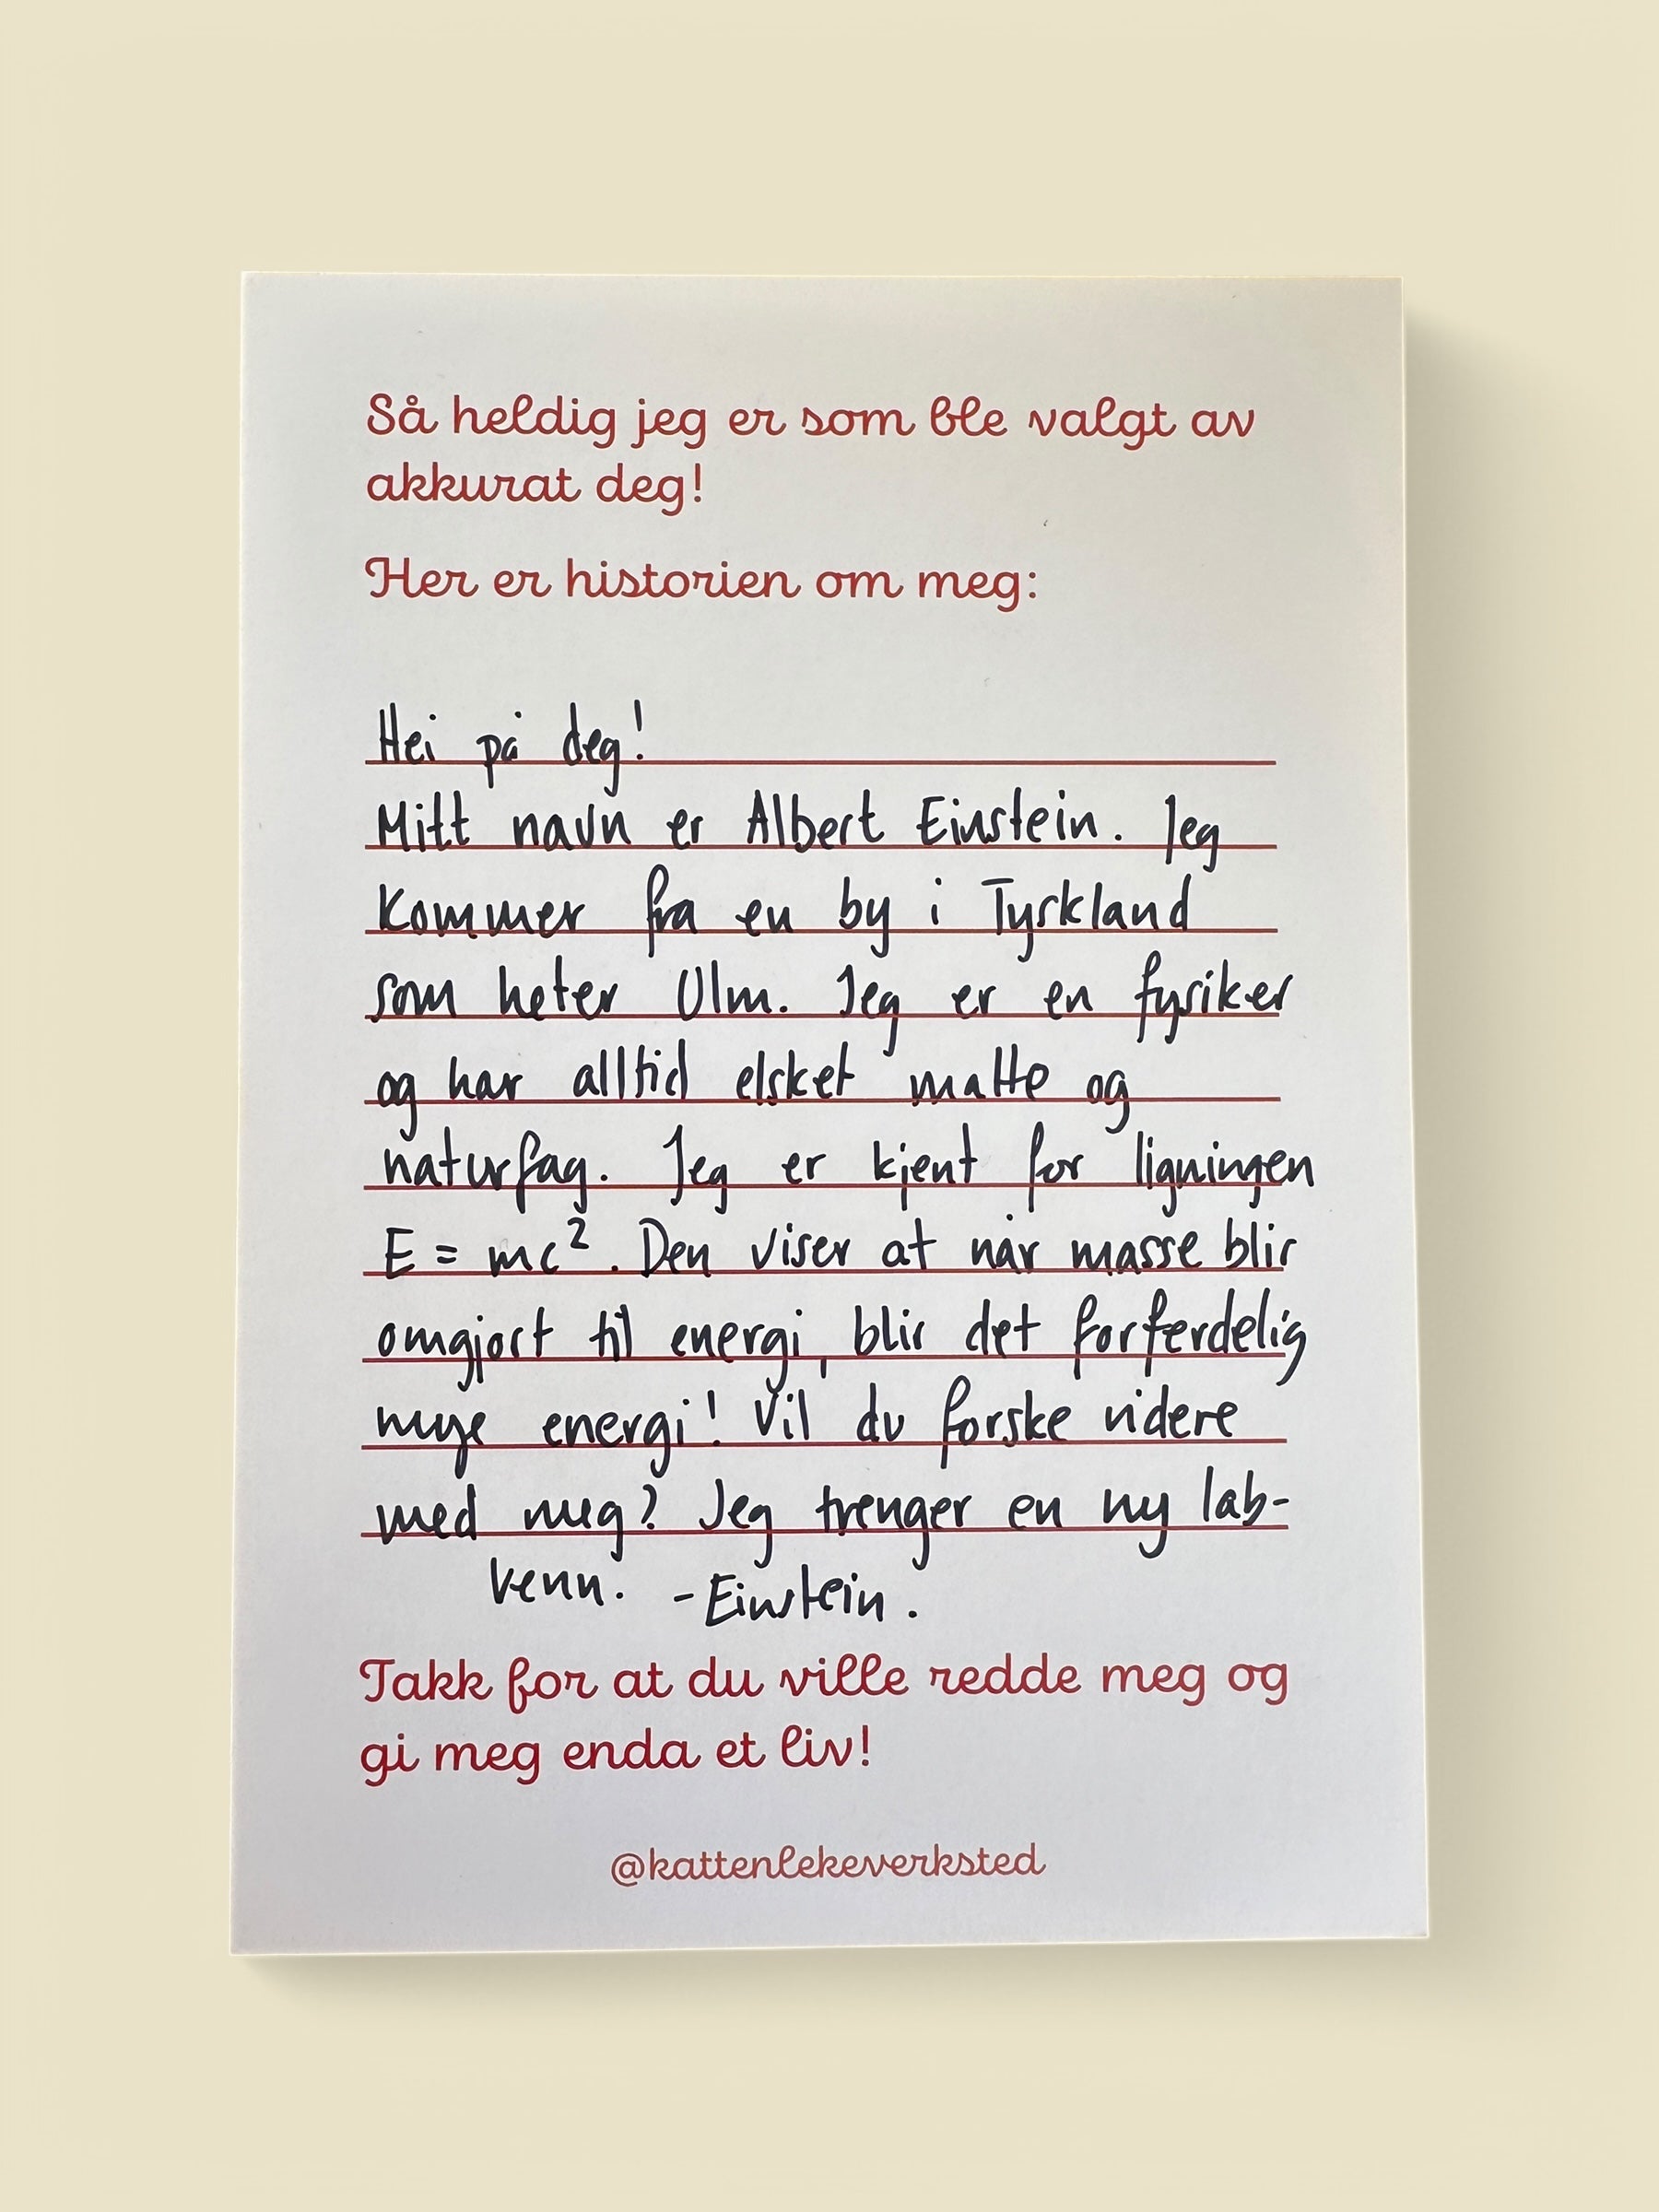 Så heldig jeg er som ble valgt av
akkurat deg!
Her er historien om meg:
Hei på deg!
Mitt navn er Albert Einstein. Jeg
kommer fra en by i Tyskland
som heter Ulm. Jeg er en fysiker
og har alltid elsket matte og
naturfag. Jeg er kjent for ligningen
E = mc². Den viser at når masse blir
omgjort til energi, blir det forferdelig
mye energi! Vil du forske videre
med meg? Jeg trenger en ny lab-
venn. -Einstein.
Takk for at du ville redde meg og
gi meg enda et liv!
@kattenlekeverksted